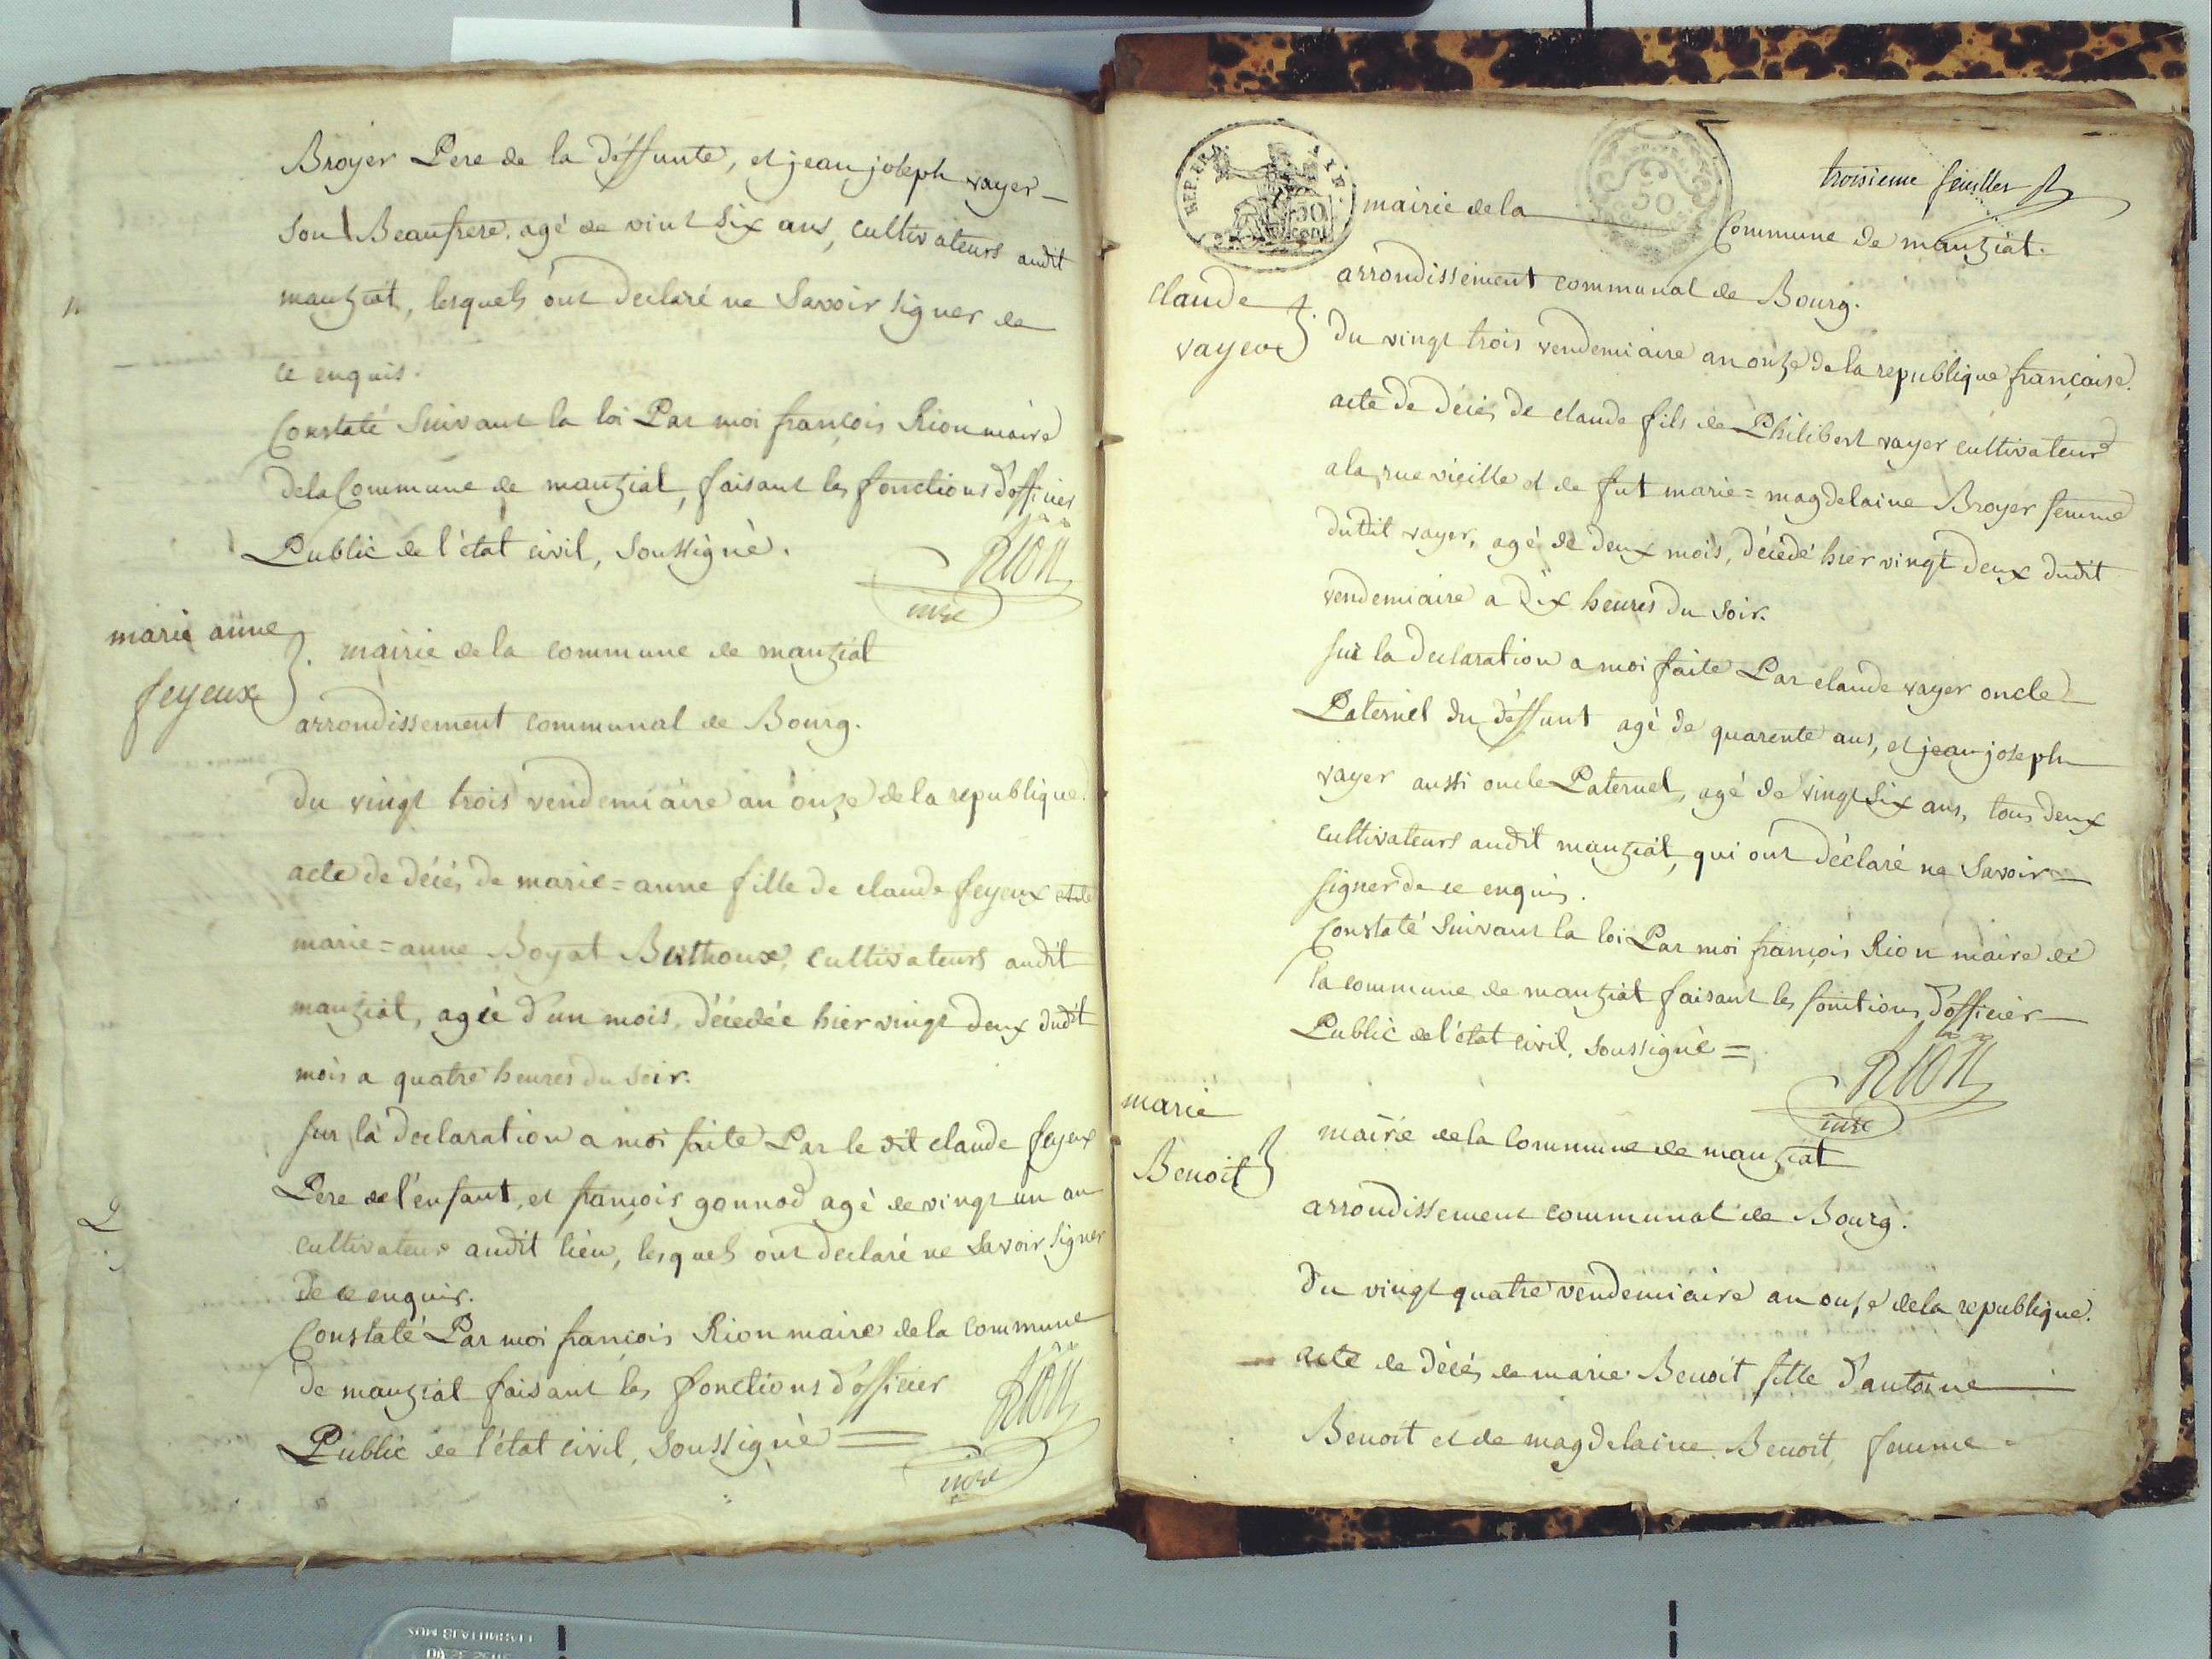 Broyer Pere de la déffunte, et jean joseph vayer
son Beaufrere, agé de vint six ans, cultivateurs audit
manziat, lesquels ont declaré ne Savoir signer de
ce enquis.
Constaté Suivant la loi Par moi françois Rion maire
dela Commune de manziat, faisant les fonctions d'officier
Public de l'état civil, soussigné.
Rion
mre
marie anne
feyeux
mairie de la commune de manziat
arrondissement communal de Bourg.
du vingt trois vendemiaire an onze de la republique.
acte de décés de marie=anne fille de claude feyeux et de
marie=anne Boyat Berthoux, cultivateurs audit
manziat, agée d'un mois, décedée hier vingt deux dudit
mois a quatre heures du soir.
sur la declaration a moi faite Par le dit claude feyeux
Pere de l'enfant, et françois gonnod agé de vingt un an
cultivateur audit lieu, lesquels ont declaré ne Savoir signer
de ce enquis.
Constaté Par moi françois Rion maire de la commune
de manziat faisant les fonctions d'officier
Public de l'état civil, soussigné =
Rion
mre
REP. FRA.
50
cent
50
troisieme feuillet
mairie de la Commune de manziat.
arrondissement communal de Bourg.
claude
vayer
du vingt trois vendemiaire an onze de la republique française.
acte de décés de claude fils de Philibert vayer cultivateur
a la rue vieille et de fut marie=magdelaine Broyer femme
dudit vayer, agé de deux mois, décedé hier vingt deux dudit
vendemiaire a Dix heures du soir.
sur la declaration a moi faite Par claude vayer oncle
Paternel du déffunt agé de quarente ans, et jean joseph
vayer aussi oncle Paternel, agé de vingt six ans, tous deux
cultivateurs audit manziat, qui ont déclaré ne Savoir
signer de ce enquis.
Constaté Suivant la loi Par moi françois Rion maire de
la commune de manziat faisant les fonctions d'officier
Public de l'état civil, soussigné =
Rion
mre
marie
Benoit
mairie de la Commune de manziat
arrondissement communal de Bourg.
du vingt quatre vendemiaire an onze de la republique.
acte de décés de marie Benoit fille d'antoine
Benoit et de magdelaine Benoit, femme